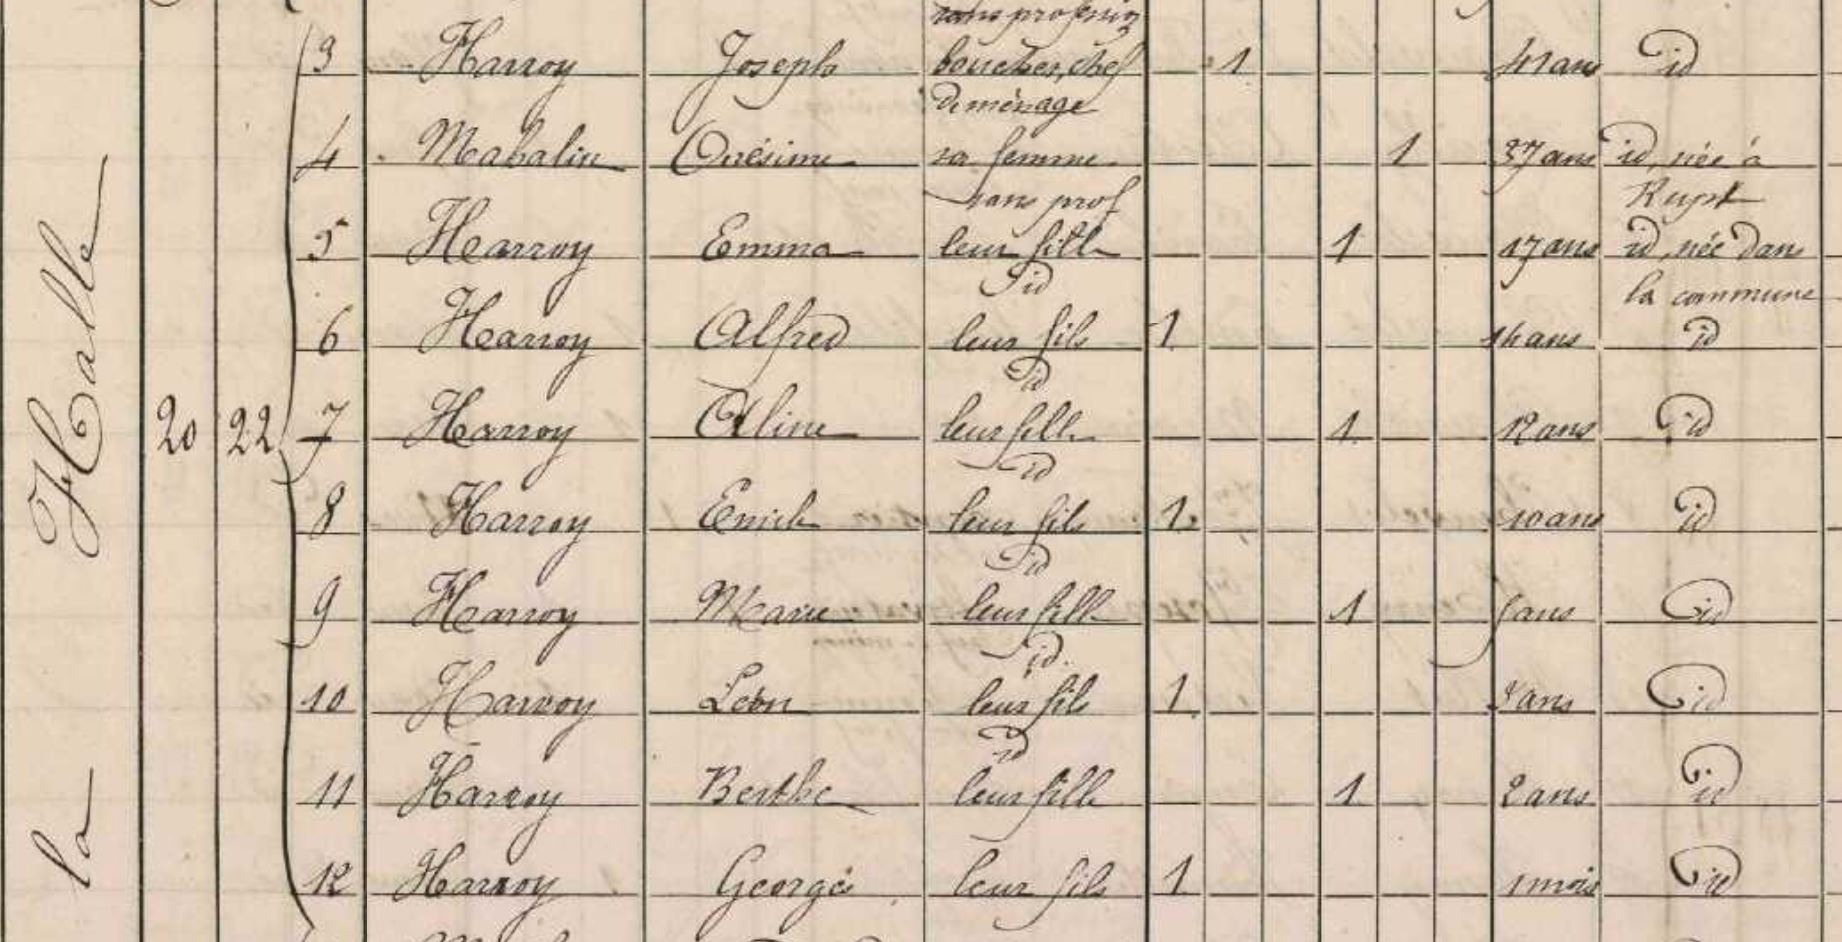 sans profession
3 Harroy Joseph boucher, chef 1 41 ans id
de ménage
4 Mahalin Onésime sa femme 1 37 ans id, née à
sans prof Rupt
5 Harroy Emma leur fille 1 17 ans id, née dans
id la commune
6 Harroy Alfred leur fils 1 14 ans id
id
20 22 7 Harroy Aline leur fille 1 12 ans id
id
8 Harroy Emile leur fils 1 10 ans id
id
9 Harroy Marie leur fille 1 ans id
id
10 Harroy Léon leur fils 1 ans id
id
11 Harroy Berthe leur fille 1 2 ans id
12 Harroy Georges leur fils 1 1 mois id
la Halle